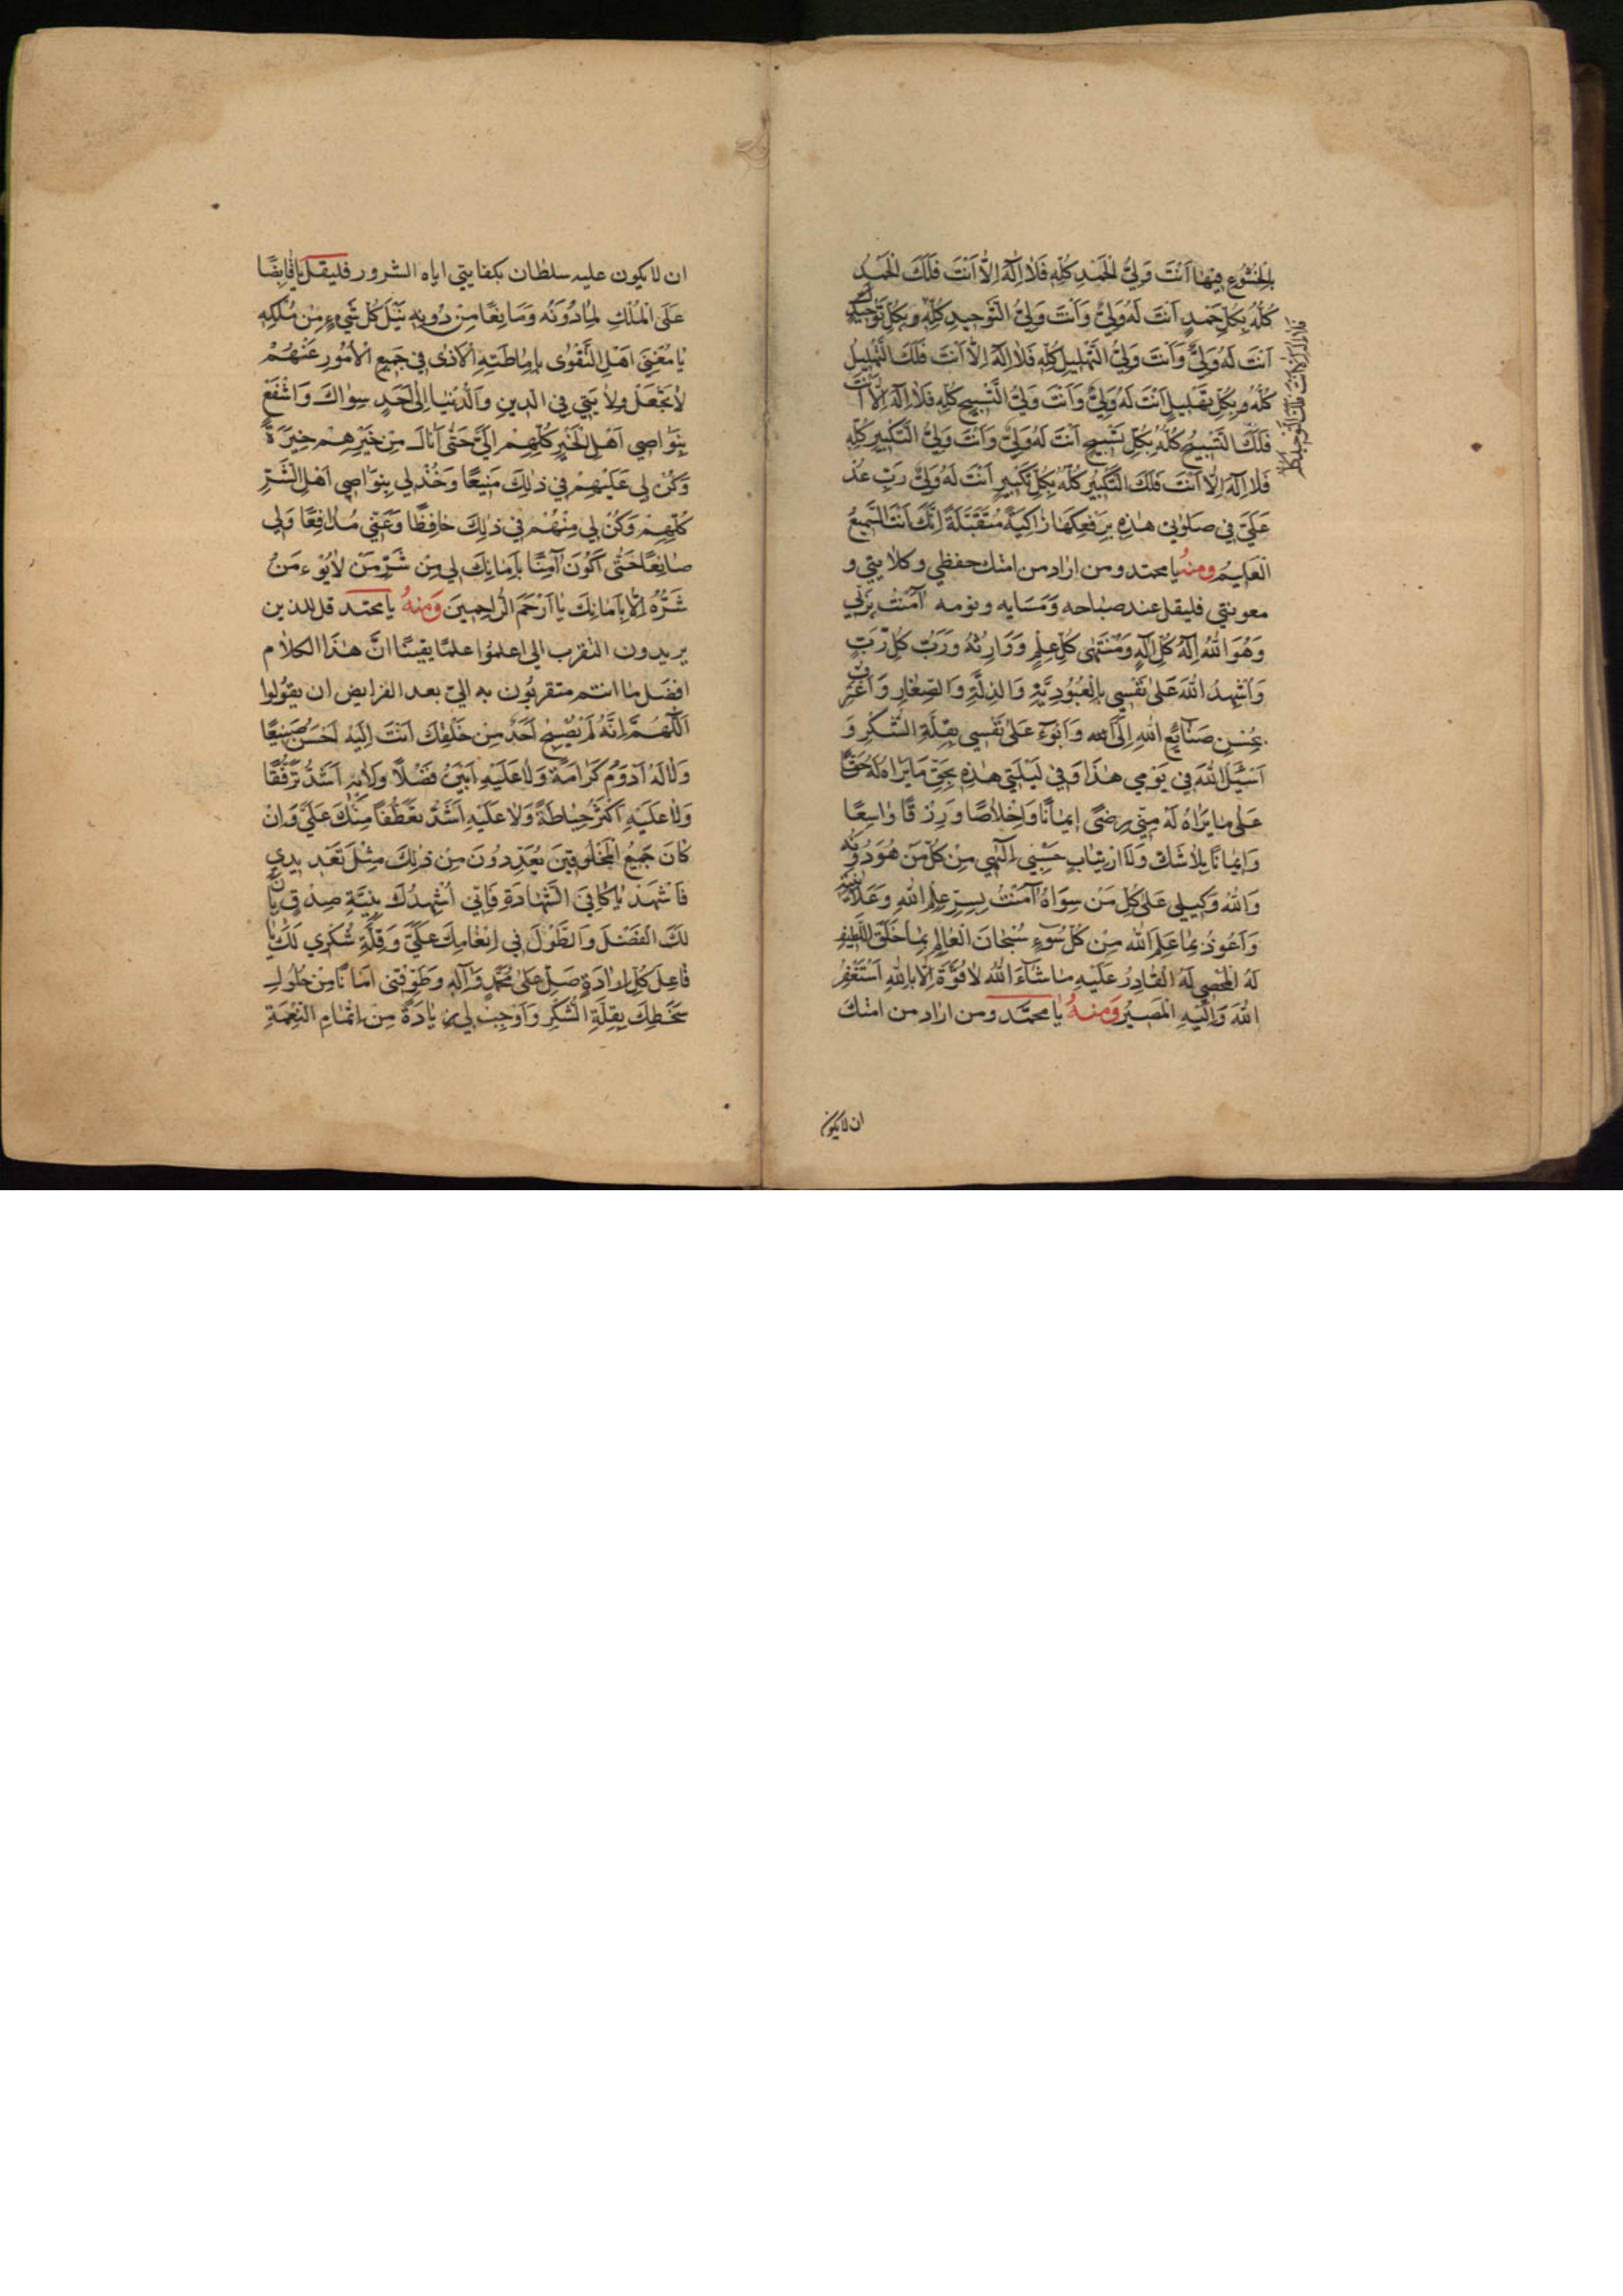 بِالْخُشُوعِ فِيهَا أَنْتَ وَلِيُّ الْحَمْدِ كُلِّهِ فَلَا إِلَهَ إِلَّا أَنْتَ فَلَكَ الْحَمْدُ
كُلُّهُ بِكُلِّ حَمْدٍ أَنْتَ لَهُ وَلِيٌّ وَأَنْتَ وَلِيُّ التَّوْحِيدِ كُلِّهِ وَبِكُلِّ تَوْحِيدٍ
فلا اله الا انت فلك التوحيد كله
أَنْتَ لَهُ وَلِيٌّ وَأَنْتَ وَلِيُّ التَّهْلِيلِ كُلِّهِ فَلَا إِلَهَ إِلَّا أَنْتَ فَلَكَ التَّهْلِيلُ
كُلُّهُ وَبِكُلِّ تَهْلِيلٍ أَنْتَ لَهُ وَلِيٌّ وَأَنْتَ وَلِيُّ التَّسْبِيحِ كُلِّهِ فَلَا إِلَهَ إِلَّا أَنْتَ
فَلَكَ التَّسْبِيحُ كُلُّهُ بِكُلِّ تَسْبِيحٍ أَنْتَ لَهُ وَلِيٌّ وَأَنْتَ وَلِيُّ التَّكْبِيرِ كُلِّهِ
فَلَا إِلَهَ إِلَّا أَنْتَ فَلَكَ التَّكْبِيرُ كُلُّهُ بِكُلِّ تَكْبِيرٍ أَنْتَ لَهُ وَلِيٌّ رَبِّ عُدْ
عَلَيَّ فِي صَلَوتِي هٰذِهِ بِرَفْعِكَهَا زَاكِيَةً مُتَقَبَّلَةً إِنَّكَ أَنْتَ السَّمِيعُ
الْعَلِيمُ وَمِنهُ يا محمد ومن اراد من امتك حفظي وكلايتي و
معونتي فليقل عند صباحه وَمَسَايِه ونومه آمَنْتُ بِرَبِّي
وَهُوَ اللّٰهُ إِلٰهُ كُلِّ إِلٰهٍ وَمُنْتَهٰى كُلِّ عِلْمٍ وَوَارِثُهُ وَرَبُّ كُلِّ رَبٍّ
وَأُشْهِدُ اللّٰهَ عَلٰى نَفْسِي بِالْعُبُودِيَّةِ وَالذِلَّةِ وَالصِّغَارِ وَأَعْتَرِفُ
بِحُسْنِ صَنَايِعِ اللّٰهِ إِلَيَّ وَأَبُوءُ عَلٰى نَفْسِي بِقِلَّةِ الشُّكْرِ وَ
أَسْئَلُ اللّٰهَ فِي يَوْمِي هٰذَا وَفِي لَيْلَتِي هٰذِهِ بِحَقِّ مَا يَرَاهُ لَهُ حَقًّا
عَلٰى مَا يَرَاهُ لَهُ مِنِّي رِضًى إِيمَانًا وَإِخْلَاصًا وَرِزْقًا وَاسِعًا
وَإِيمَانًا بِلَا شَكٍّ وَلَا ارْتِيَابٍ حَسْبِي إِلٰهِي مِنْ كُلِّ مَنْ هُوَ دُونَهُ
وَاللّٰهُ وَكِيلِي عَلٰى كُلِّ مَنْ سِوَاهُ آمَنْتُ بِسِرِّ عِلْمِ اللّٰهِ وَعَلَانِيَتِهِ
وَأَعُوذُ بِمَا عَلِمَ اللّٰهُ مِنْ كُلِّ سُوءٍ سُبْحَانَ الْعَالِمِ بِمَا خَلَقَ اللَّطِيفِ
لَهُ الْمُحْصِي لَهُ الْقَادِرُ عَلَيْهِ مَا شَاءَ اللّٰهُ لَا قُوَّةَ إِلَّا بِاللّٰهِ أَسْتَغْفِرُ
اللّٰهَ وَإِلَيْهِ الْمَصِيرُ وَمِنهُ يا محمد ومن اراد من امتك
ان لا يكون
ان لا يكون عليه سلطان بكفايتي اياه الشرور فليقل يَا قَابِضًا
عَلَى الْمُلْكِ لِمَا دُونَهُ وَمَانِعًا مِنْ دُونِهِ نَيْلَ كُلِّ شَيْءٍ مِنْ مُلْكِهِ
يَا مُغْنِيَ أَهْلِ التَّقْوٰى بِإِمَاطَتِهِ الْأَذٰى فِي جَمِيعِ الْأُمُورِ عَنْهُمْ
لَا تَجْعَلْ وِلَايَتِي فِي الدِينِ وَالدُّنْيَا إِلٰى أَحَدٍ سِوَاكَ وَاشْفَعْ
بِنَوَاصِي أَهْلِ الْخَيْرِ كُلِّهِمْ إِلَيَّ حَتّٰى أَنَالَ مِنْ خَيْرِهِمْ خَيْرَهُ
وَكُنْ لِي عَلَيْهِمْ فِي ذٰلِكَ مَنِيعًا وَخُذْ لِي بِنَوَاصِي أَهْلِ الشَّرِّ
كُلِّهِمْ وَكُنْ لِي مِنْهُمْ فِي ذٰلِكَ حَافِظًا وَعَنِّي مُدَافِعًا وَلِي
مَانِعًا حَتّٰى أَكُونَ آمِنًا بِأَمَانِكَ لِي مِنْ شَرِّ مَنْ لَا يُؤْمَنُ
شَرُّهُ إِلَّا بِأَمَانِكَ يَا أَرْحَمَ الرَّاحِمِينَ وَمِنهُ يا محمد قل للذين
يريدون التقرب الي اعلمُوا علمًا يقينًا انَّ هٰذَا الكلام
افضل ما انتم متقربُون به اليّ بعد الفرايض ان يقُولوا
اَللّٰهُمَّ إِنَّهُ لَمْ يُصْبِحْ أَحَدٌ مِنْ خَلْقِكَ أَنْتَ إِلَيْهِ أَحْسَنُ صَنِيعًا
وَلَا لَهُ أَدْوَمُ كَرَامَةً وَلَا عَلَيْهِ أَبْيَنُ فَضْلًا وَلَا بِهِ أَشَدُّ تَرَفُّقًا
وَلَا عَلَيْهِ أَكْثَرُ حِيَاطَةً وَلَا عَلَيْهِ أَشَدُّ تَعَطُّفًا مِنْكَ عَلَيَّ وَإِنْ
كَانَ جَمِيعُ الْمَخْلُوقِينَ يُعَدِّدُونَ مِنْ ذٰلِكَ مِثْلَ تَعْدِيدِي
فَاشْهَدْ يَا كَافِيَ الشَّهَادَةِ فَإِنِّي أُشْهِدُكَ بِنِيَّةِ صِدْقٍ بِأَنَّ
لَكَ الْفَضْلَ وَالطَّوْلَ فِي إِنْعَامِكَ عَلَيَّ وَقِلَّةِ شُكْرِي لَكَ يَا
فَاعِلَ كُلِّ إِرَادَةٍ صَلِّ عَلٰى مُحَمَّدٍ وَآلِهِ وَطَوِّقْنِي أَمَانًا مِنْ حُلُولِ
سَخَطِكَ بِقِلَّةِ الشُّكْرِ وَأَوْجِبْ لِي زِيَادَةً مِنْ إِتْمَامِ النِّعْمَةِ